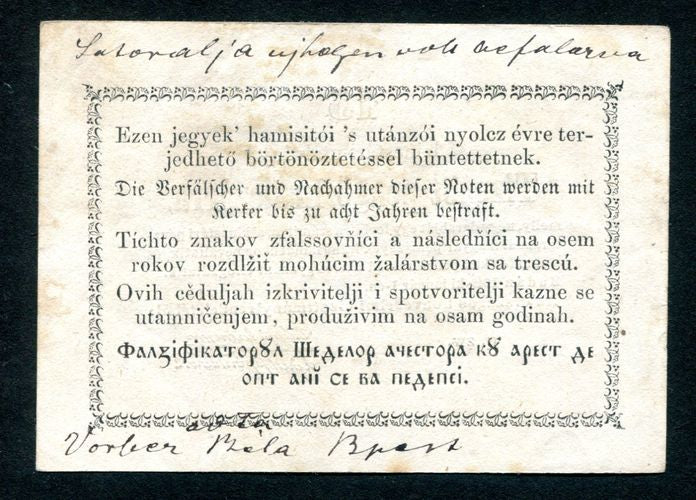 Satoralja ujhelyen volt
Ezen jegyek' hamisitói 's utánzói nyolcz évre ter-
jedhető börtönöztetéssel büntettetnek.
Die Verfälscher und Nachahmer dieser Noten werden mit
Kerker bis zu acht Jahren bestraft.
Tíchto znakov zfalssovňíci a násľedňíci na osem
rokov rozdlžiť mohúcim žalárstvom sa trescú.
Ovih cěduljah izkrivitelji i spotvoritelji kazne se
utamničenjem, produživim na osam godinah.
Фалꙃіфікаторꙋл Шеделор ачестора кꙋ арест де
опт анĭ се ва педепсі.
Vorber Béla Bpest